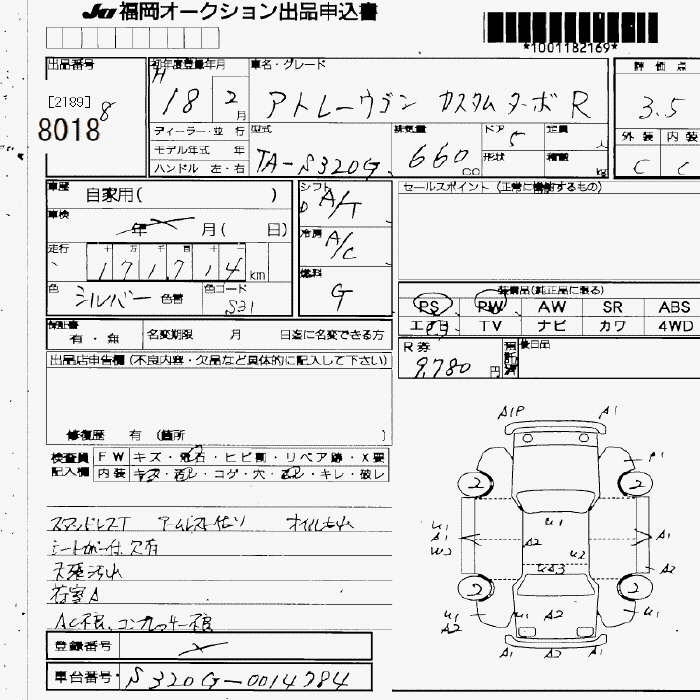 JU 福岡オークション出品申込書
*1001182169*
出品番号
[2189]
8018
8
初年度登録年月
H 18 2月
車名・グレード
アトレーワゴン カスタムターボR
評価点
3.5
外装 内装
C C
ディーラー・並行
モデル年式 年
ハンドル 左・右
型式
TA-S320G
排気量
660cc
ドア
5
形状
定員
人
積載
kg
車歴
自家用( )
車検
年 月( 日)
走行
十 万 千 百 十 一
171,714km
色
シルバー 色替
色コード
S31
シフト
A/T
冷房
A/C
燃料
G
セールスポイント (正常に機能するもの)
装備品(純正品に限る)
PS PW AW SR ABS
エアB TV ナビ カワ 4WD
保証書
有・無
名変期限 月 日迄に名変できる方
R券
9,780円
後日品
出品店申告欄 (不良内容・欠品など具体的に記入して下さい)
修復歴 有 (箇所 )
検査員
記入欄
FW キズ・飛石・ヒビ割・リペア跡・X要
内装 キズ・汚レ・コゲ・穴・切レ・破レ
シートカバー付、欠有
天張汚れ
荷室A
AC不良、コンプレッサー不良
登録番号
車台番号
S320G-0014784
A1P A1
A1
2 2
U1 A1 W2
U1
A2
U2
U3
A1
A2
2 2
U1 A2
U1
A2
U1
A1 A2 A1